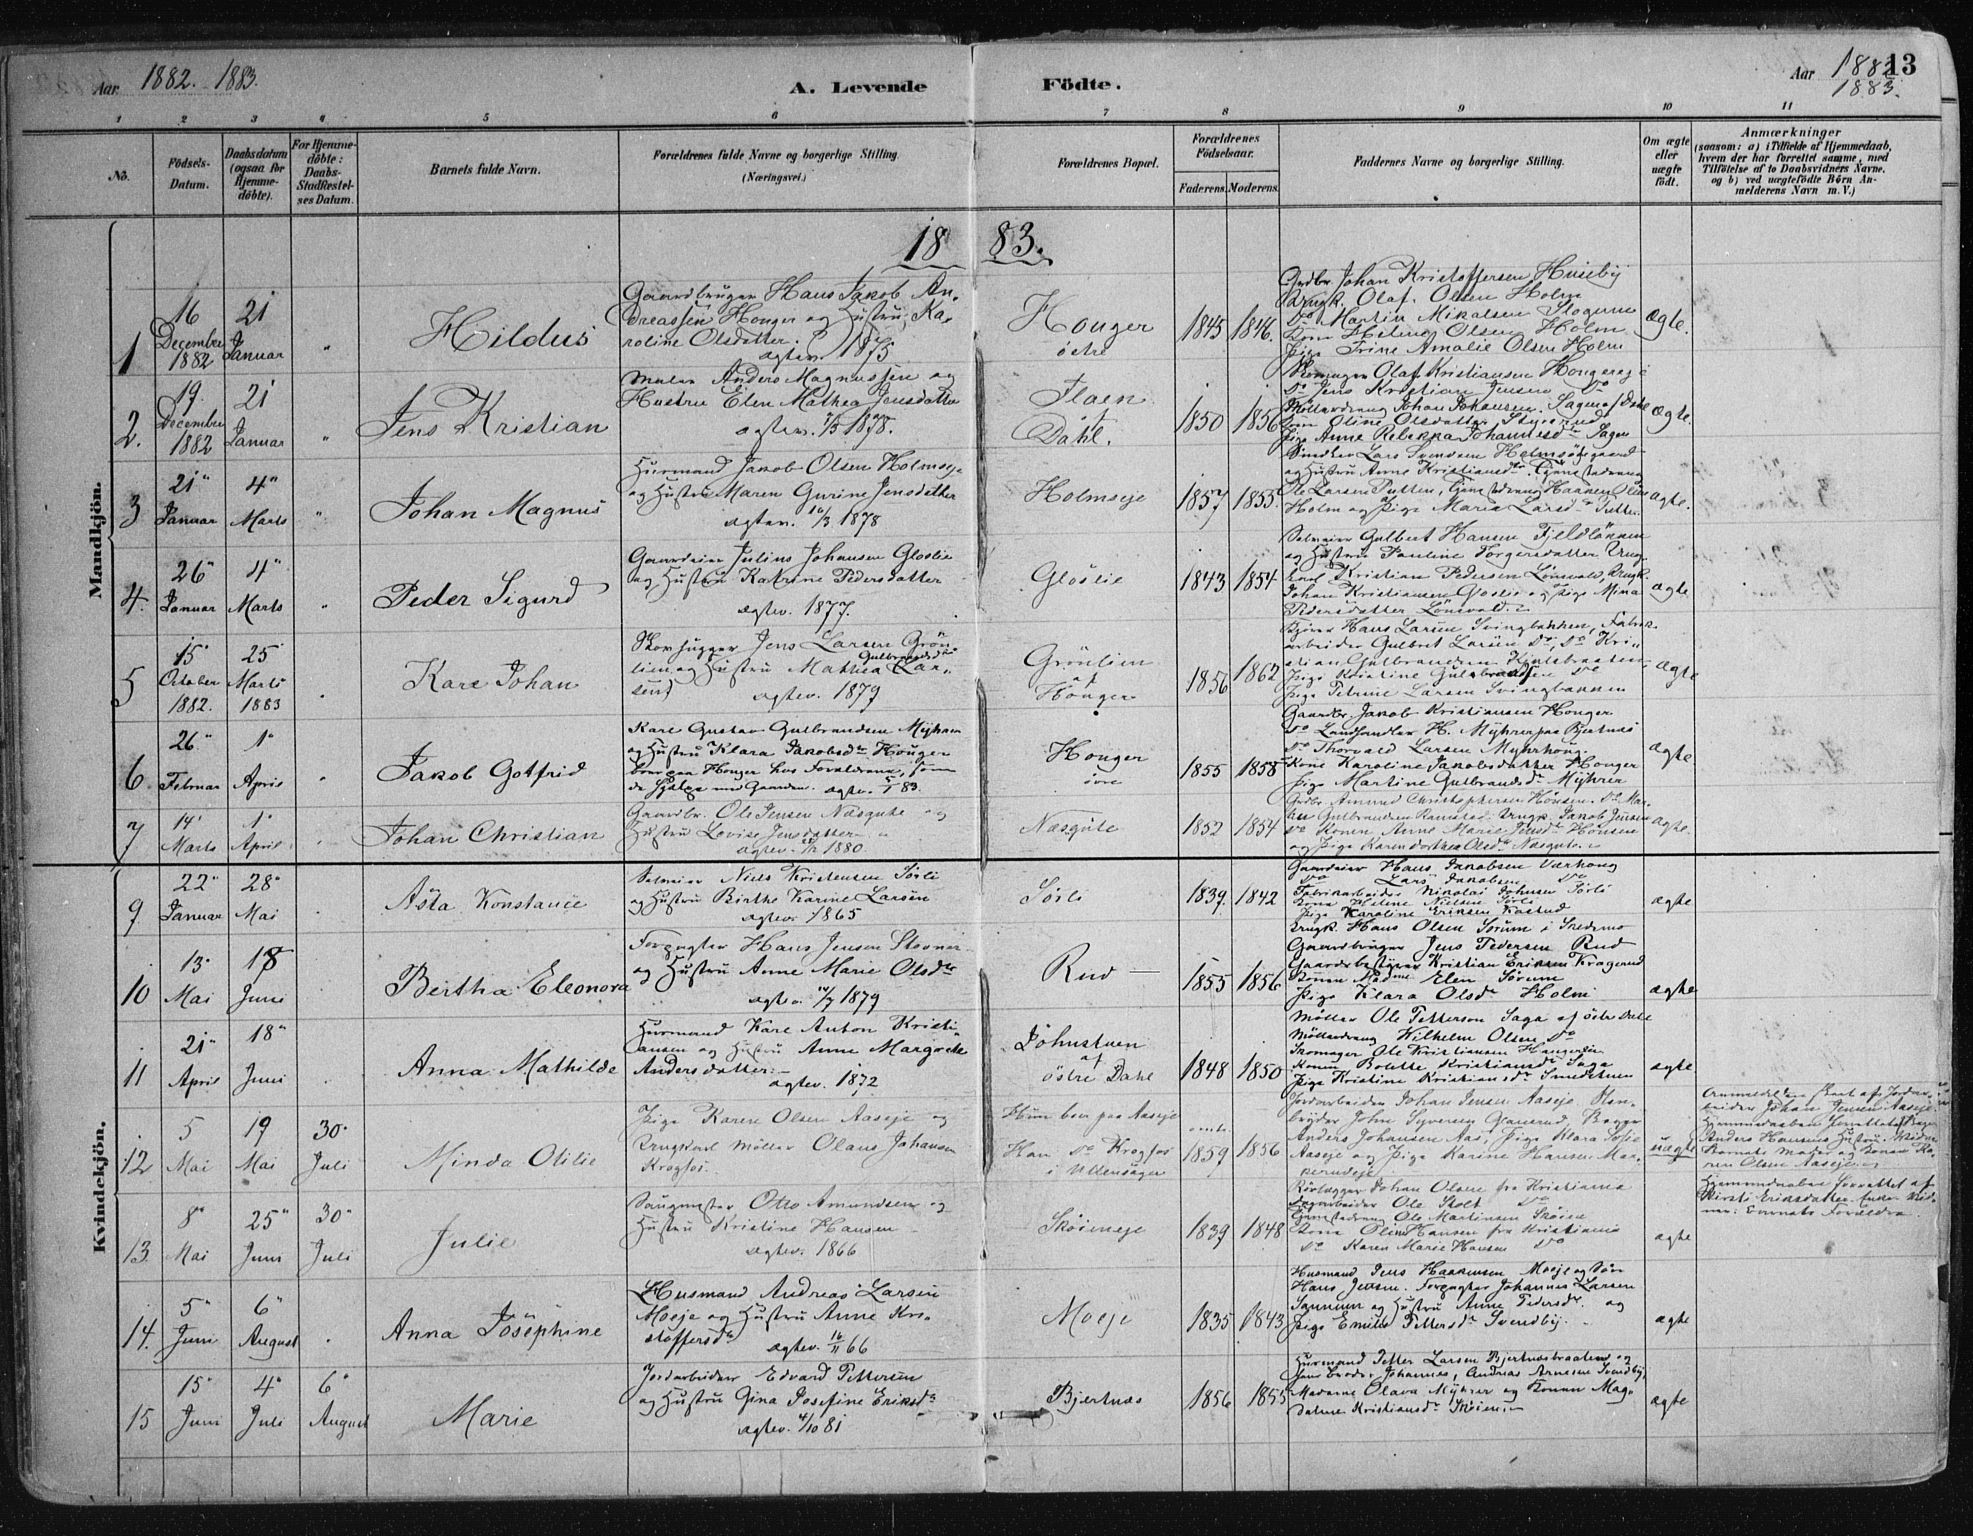 Aar 1882. 1883.
A. Levende Födte.
Aar 1882 13
1883.
1 2 3 4 5 6 7 8 9 10 11
No.
Födsels-Datum.
Daabsdatum (ogsaa for Hjemme-döbte).
For Hjemme-döbte: Daabs-Stadfæstel-ses Datum.
Barnets fulde Navn.
Forældrenes fulde Navne og borgerlige Stilling (Næringsvei.)
Forældrenes Bopæl.
Forældrenes Födselsaar.
Faderens. Moderens.
Faddernes Navne og borgerlige Stilling.
Om ægte eller uægte födt.
Anmærkninger
(saasom: a) i Tilfælde af Hjemmedaab, hvem der har forrettet samme, med Tilföielse af to Daabsvidners Navne. og b) ved uægtefödte Börn An-melderens Navn m. V.)
1883.
Mandkjön.
1 16 Decembre 1882 21 Januar " Hildus
Gaardbruger Hans Jakob An-
dreassen Honger og Hustru, Ka-
roline Olsdatter.
ægtev. 1875
Honger östre 1845 1846.
Grdbr. Johan Kristoffersen Huseby
Ungk. Olaf Olsen Holm
Do Martin Mikalsen
Kone Olsen Holm
Pige Trine Amalie Olsen Holm
ægte.
2. 19. Decembre 1882 21 Januar " Jens Kristian
Maler Anders Magnussen og
Hustru Elen Mathea Jensdatter
ægtev. 1878.
Dahl. 1850 1856
Skomager Olaf Kristiansen Hongereje
Do Jens Kristian Jensen Do
Möllerdreng Johan Johansen
Kone Oline Olsdatter
Pige Anne Rebekka Johannesdr Sagen
ægte.
3 21" Januar 4" Marts " Johan Magnus
Husmand Jakob Olsen Holmseje
og Hustru Maren Gurine Jensdatter
ægtev. 16/3 1878
Holmseje 1857 1855.
Lars Svendsen
og Hustru Anne Kristiansdr
Ole Larsen Haaken Olsen
Holm og Pige Maria Larsdr
ægte.
4. 26" Januar 4" Marts " Peder Sigurd
Gaardeier Julius Johansen Gloslie
og Hustru Katrine Pedersdatter
ægtev. 1877.
Gloslie 1843 1854
Selveier Gulbert Hansen
og Hustru Pauline Torgersdatter Ung-
karl Kristian Pedersen Lönvald, Ungk.
Johan Kristiansen Gloslie og Pige Mina
Pedersdatter Lönvald.
ægte
5 15" October 1882. 25 Marts 1883 " Karl Johan
Skovhugger Jens Larsen Grön-
lien og Hustru Mathea Gulbrandsdr Lar-
sen
ægtev. 1879
Grönlien af Honger 1856 1862
Hans Larsen Svingbakken, Fabrik-
arbeider Gulbret Larsen Do, Do Kri-
stian Gulbrandsen
Pige Kristine Gulbrandsen Do
Pige Petrine Larsen Svingbakken
ægte
6 26" Februar 1" April " Jakob Gotfrid
Karl Gustav Gulbrandsen Myhrer
og Hustru Klara Jakobsdr Honger
boer paa Honger hos Forældrene, som
de hjelpe med Gaarden. ægtev. 83.
Honger övre 1855 1858
Gaardbr. Jakob Kristiansen Honger
Do Landhandler H. Myhrer paa Bjertnæs
Do Thorvald Larsen Myhrhoug.
Kone Karoline Jakobsdatter Honger
Pige Martine Gulbrandsdr Myhrer
ægte
7 14' Marts 1" April " Johan Christian
Gaardbr. Ole Jensen Næsgute og
Hustru Lovise Jensdatter
ægtev. 1880.
Næsgute 1852 1854
Grdbr. Amund Christophersen Hönsen. Do Mar-
Gulbrandsen Ungk. Jakob Jensen
Do Konen Anne Marie Jensdr Hönsen
og Pige Karen Dorthea Olsdr Næsgute.
ægte.
Kvindekjön.
9 22" Januar 28" Mai " Ásta Konstance
Selveier Niels Kristensen Sörli
og Hustru Birthe Karine Larsen
ægtev. 1865
Sörli 1839. 1842
Gaardeier Hans Jakobsen Værhoug
Do Lars Jakobsen Do
Fabrikarbeider Nikolai Johnsen Sörli
Kone Helene Nielsen Sörli
Pige Karoline Eriksen
ægte
10 13" Mai 18 Juni Bertha Eleonora
Forpagter Hans Jensen
og Hustru Anne Marie Olsdr
ægtev. 1879
Rud 1855 1856
Ungk. Hans Olsen Sörum i Skedsmo
Gaardbruger Jens Pedersen Rud
Gaardsbestyrer Kristian Eriksen Kragerud
Elen Sörum
Pige Klara Olsdr Holm
ægte
11 21" April 18" Juni " Anna Mathilde
Husmand Karl Anton Kristi-
ansen og Hustru Anne Margrete
Andersdatter.
ægtev. 1872
Johnstuen af östre Dahl 1848 1850
Möller Ole Pettersen Saga af östre Dahl
Möllerdreng Wilhelm Olsen Do
Skomager Ole Kristiansen
Konen Bolette Kristiansdr Saga
Pige Kristine Kristiansdr Smedstuen
ægte
12 5 Mai 19 Mai 30" Juli Minda Otilie
Pige Karen Olsen Aaseje og
Ungkarl Möller Olaus Johansen
Krogfos
Hun boer paa Aaseje
Han Do Krogfos i Ullensager
omtr. 1859 1856
Jordarbeider Johan Jensen Aaseje
John Syversen
Anders Johansen Aas, Pige Klara Sofie
Aaseje og Pige Karine Hansen
uægte
Anmeldelsen skeet af Jordar-
beider Johan Jensen Aaseje.
Hjemmedaaben forrettet af
Anders Hansens Hustru.
Barnets Moder og Konen Ka-
ren Olsen Aaseje.
13 8" Mai 25" Juni 30" Juli Julie
Saugmester Otto Amundsen og
Hustru Kristine Hansen
ægtev. 1866
Sköieneje 1839 1848
Rörlægger Johan Olsen fra Kristiania
Ole Stolt Do
Tjenestedreng Ole Martinsen Sköien
Kone Oline Hansen fra Kristiania
Do Karen Marie Hansen Do
ægte
Hjemmedaaben forrettet af
Kirsti Eriksdatter. Enke. Vid-
ner: Barnets Forældre.
14. 5" Juni 6" August " Anna Josephine
Husmand Andreas Larsen
Moeje og Hustru Anne Kri-
stoffersdr
ægtev. 16/11 66
Moeje 1835 1843
Husmand Jens Haakensen Moeje og Sön
Hans Jensen. Forpagter Johannes Larsen
og Hustru Anne Pedersdr og
Pige Emilie Pettersdr Svendby.
ægte
15 15" Juni 4" Juli 6" August Marie
Jordarbeider Edvard Pettersen
og Hustru Gina Josefine Eriksdr
ægtev. 4/10 81
Bjertnæs 1856 1855
Husmand Petter Larsen Bjertnæsbraaten og
Johannes, Andreas Arnesen Svendby,
Madame Olava Myhrer og Konen Mag-
dalene Kristiansdr Sköien.
ægte